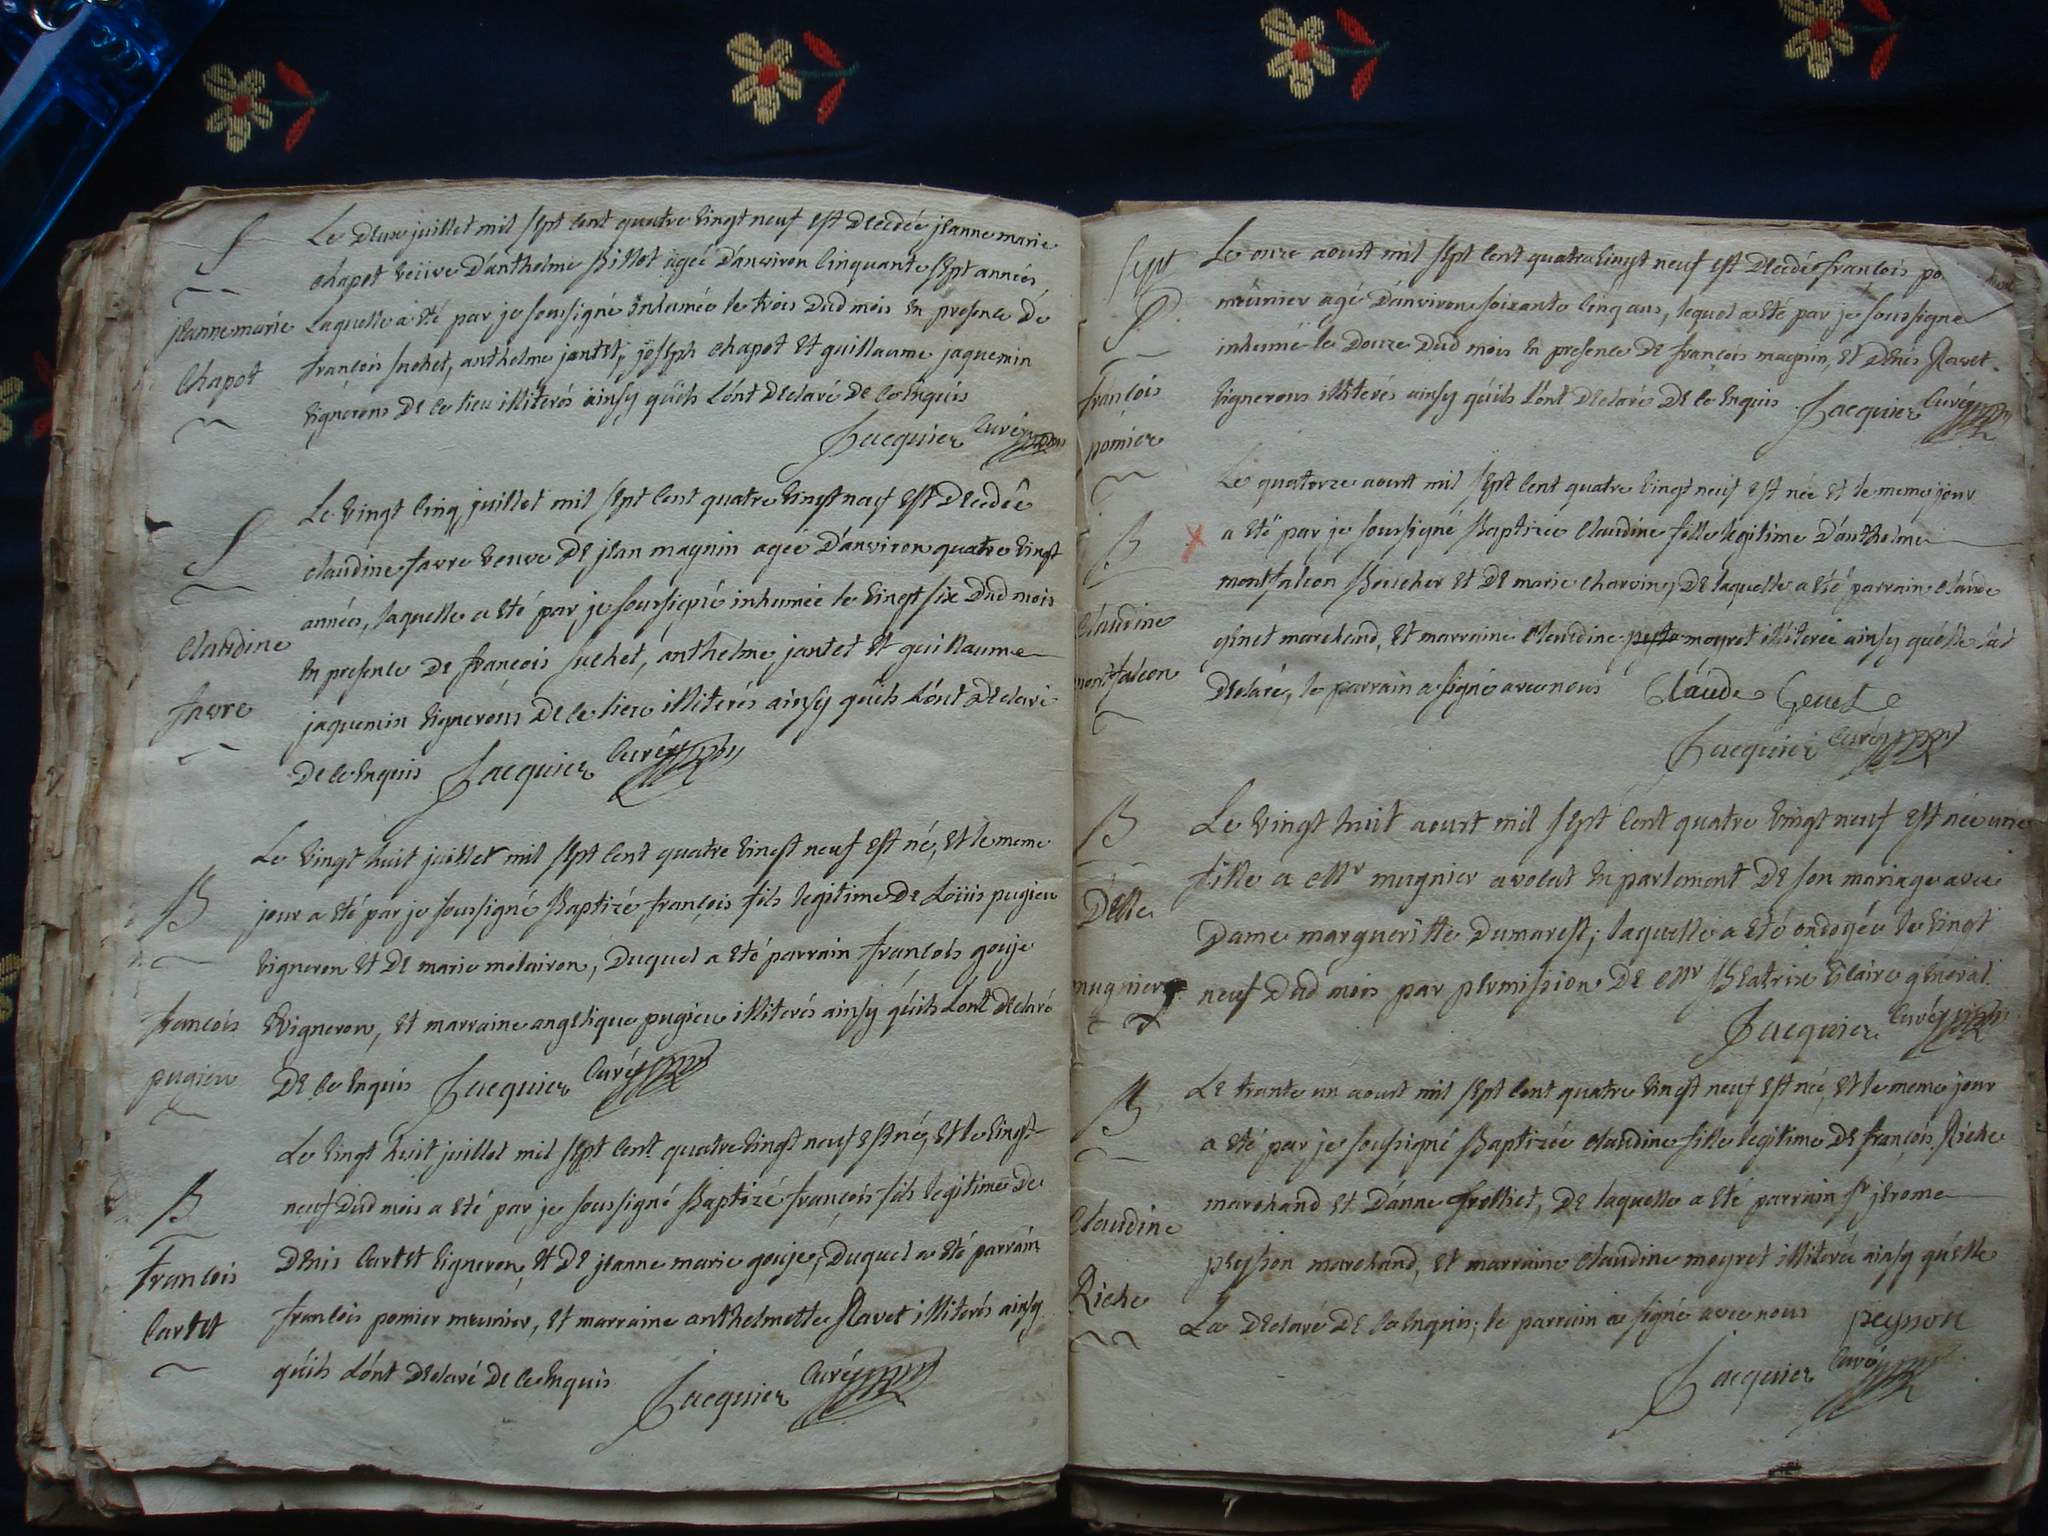 S
jeanne marie
Chapot
Le deux juillet mil sept cent quatre vingt neuf est decedée jeanne marie
chapot veüive d'anthelme Billot agée d'anviron cinquante sept années,
laquelle a eté par je soussigné inhumée le trois dud mois en presence de
françois suchet, anthelme jantet, joseph chapot et guillaume jaquemin
vignerons de ce lieu illiterés ainsy quils l'ont declaré de ce enquis
Jacquier Curé
S
Claudine
favre
Le vingt cinq juillet mil sept cent quatre vingt neuf est decedée
claudine favre veuve de jean magnin agée d'anviron quatre vingt
années, laquelle a eté par je soussigné inhumée le vingt six dud mois
en presence de françois suchet, anthelme jantet et guillaume
jaquemin vignerons de ce lieu illiterés ainsy quils l'ont declaré
de ce enquis Jacquier Curé
B
françois
pugieu
Le vingt huit juillet mil sept cent quatre vingt neuf est né, et le meme
jour a eté par je soussigné Baptizé françois fils legitime de Loüis pugieu
vigneron et de marie molairon, duquel a eté parrain françois gouje
vigneron, et marraine angelique pugieu illiterés ainsy quils l'ont declaré
de ce enquis Jacquier Curé
B
françois
Cartet
Le vingt huit juillet mil sept cent quatre vingt neuf est né, et le vingt
neuf dud mois a eté par je soussigné Baptizé françois fils legitime de
denis Cartet vigneron, et de jeanne marie gouje, duquel a eté parrain
françois pomier meunier, et marraine anthelmette Ravet illiterés ainsy
quils l'ont declaré de ce enquis Jacquier Curé
sept
S
françois
pomier
Le onze aoust mil sept cent quatre vingt neuf est decedé françois po
meûnier agé d'anviron soixante cinq ans, lequel a eté par je soussigné
inhumé le douze dud mois en presence de françois magnin, et denis Ravet
vignerons illiterés ainsy quils l'ont declaré de ce enquis Jacquier Curé
B
Claudine
montfalcon
Le quatorze aoust mil sept cent quatre vingt neuf est née et le meme jour
a eté par je soussigné Baptizée claudine fille legitime d'anthelme
montfalcon Boucher et de marie charvin, de laquelle a eté parrain claude
genet marchand, et marraine claudine meyret illiterée ainsy quelle l'a
declaré, le parrain a signé avec nous Claude Genet
Jacquier Curé
B
Delle
mugnier
Le vingt huit aoust mil sept cent quatre vingt neuf est née une
fille a Mr mugnier avocat en parlement de son mariage avec
Dame margueritte Dumarest; laquelle a eté ondoyée le vingt
neuf dud mois par permission de Mr Beatrix vicaire général
Jacquier Curé
B
Claudine
Riche
Le trante un aoust mil sept cent quatre vingt neuf est née, et le meme jour
a eté par je soussigné Baptizée claudine fille legitime de françois Riche
marchand et d'anne frolliet, de laquelle a eté parrain Sr jerome
peysson marchand, et marraine claudine meyret illiterée ainsy quelle
La declaré de ce enquis; le parrain a signé avec nous peysson
Jacquier Curé